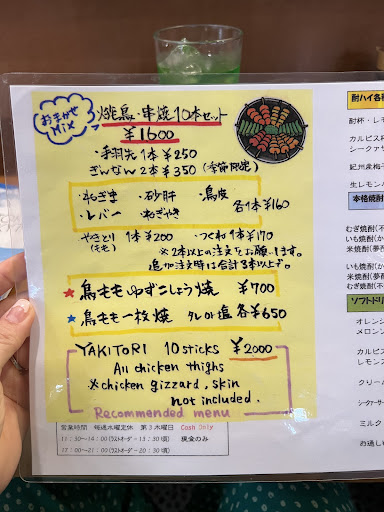 おまかせMIX
焼鳥・串焼10本セット
¥1600
・手羽先1本 ¥250
ぎんなん2本 ¥350(季節限定)
・ねぎま ・砂肝 ・鳥皮
・レバー ・ねぎやき 各1本¥160
やきとり(もも) 1本 ¥200 ・つくね1本¥170
※2本以上の注文をお願いします。
追加注文時は合計3本以上で。
★鳥ももゆずこしょう焼 ¥700
★鳥もも一枚焼 タレor塩 各¥650
YAKITORI 10 sticks ¥2000
All chicken thighs
※chicken gizzard, skin
not included.
Recommended menu
営業時間 毎週水曜定休 第3木曜日 Cash Only
11:30~14:00(ラストオーダー13:30頃) 現金のみ
17:00~21:00(ラストオーダー20:30頃)
酎ハイ各種
酎杯・レモ
カルピス酎
シークァサ
紀州産梅干
生レモン
本格焼酎
むぎ焼酎(
いも焼酎(か
米焼酎(夢
むぎ焼酎(
いも焼酎(
米焼酎(夢
ソフトドリ
オレンジ
メロン
カルピス
レモンス
クリー
シークァーサー
ミルク
お通し